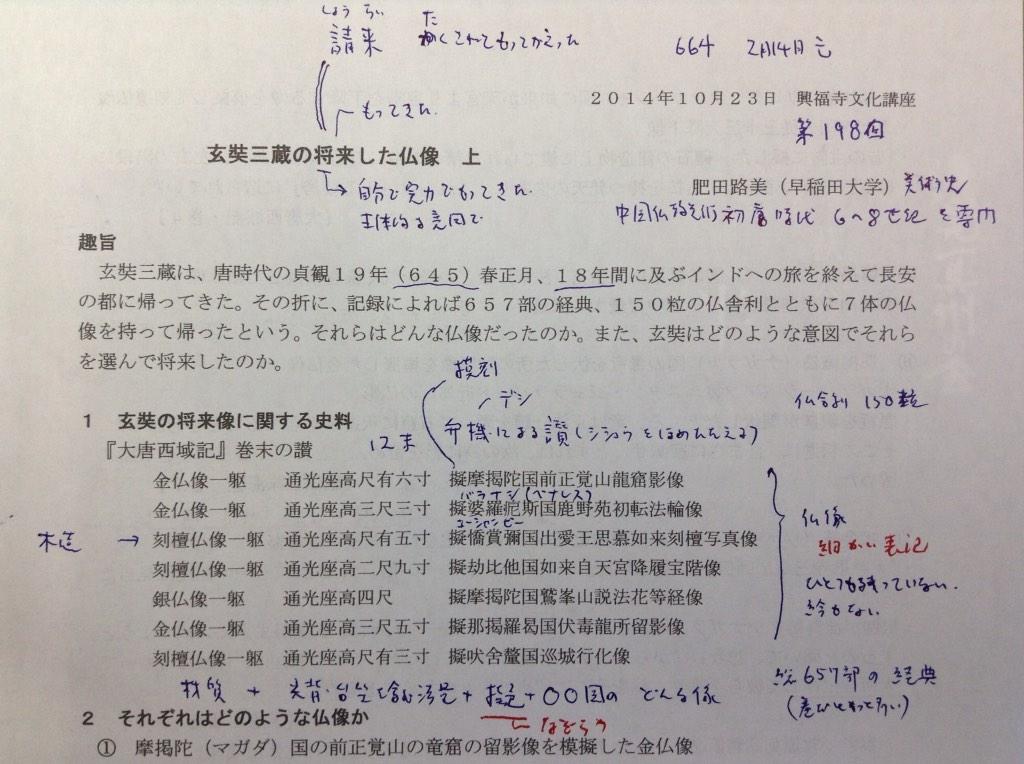 しょうらい
請来
た
くこれてもってかえった
664 2月14日
もってきた.
2014年10月23日 興福寺文化講座
第198回
玄奘三蔵の将来した仏像 上
自分で完力でもってきた
主体的な意図で
肥田路美（早稲田大学）美術史
中国仏教美術 初唐時代 6〜8世紀を専門
趣旨
玄奘三蔵は、唐時代の貞観１９年（６４５）春正月、１８年間に及ぶインドへの旅を終えて長安
の都に帰ってきた。その折に、記録によれば６５７部の経典、１５０粒の仏舎利とともに７体の仏
像を持って帰ったという。それらはどんな仏像だったのか。また、玄奘はどのような意図でそれら
を選んで将来したのか。
模刻
デシ
仏舎利 150粒
１ 玄奘の将来像に関する史料
12末
弁機による讃（ をほめたたえる）
『大唐西域記』巻末の讃
金仏像一躯 通光座高尺有六寸 擬摩掲陀国前正覚山龍窟影像
バラナシ（ベナレス）
金仏像一躯 通光座高三尺三寸 擬婆羅痆斯国鹿野苑初転法輪像
コーシャンビー
木造 → 刻檀仏像一躯 通光座高尺有五寸 擬憍賞彌国出愛王思慕如来刻檀写真像
刻檀仏像一躯 通光座高二尺九寸 擬劫比他国如来自天宮降履宝階像
銀仏像一躯 通光座高四尺 擬摩掲陀国鷲峯山説法花等経像
金仏像一躯 通光座高三尺五寸 擬那掲羅曷国伏毒龍所留影像
刻檀仏像一躯 通光座高尺有三寸 擬吠舎釐国巡城行化像
仏像
細かい表記
ひとつも残っていない.
絵もない.
材質 + 光背・台座を含む法量 + 擬 + 〇〇国の どんな像
なぞらう
総657部の経典
２ それぞれはどのような仏像か
① 摩掲陀（マガダ）国の前正覚山の竜窟の留影像を模擬した金仏像